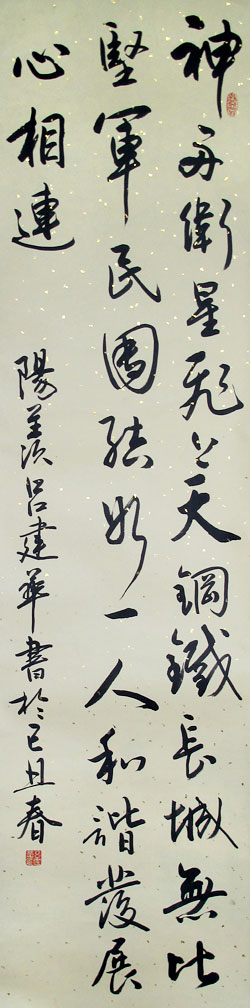 神舟衛星飛上天鋼鐵長城無比
堅軍民團結如一人和諧發展
心相連
陽羨呂建華書於己丑春